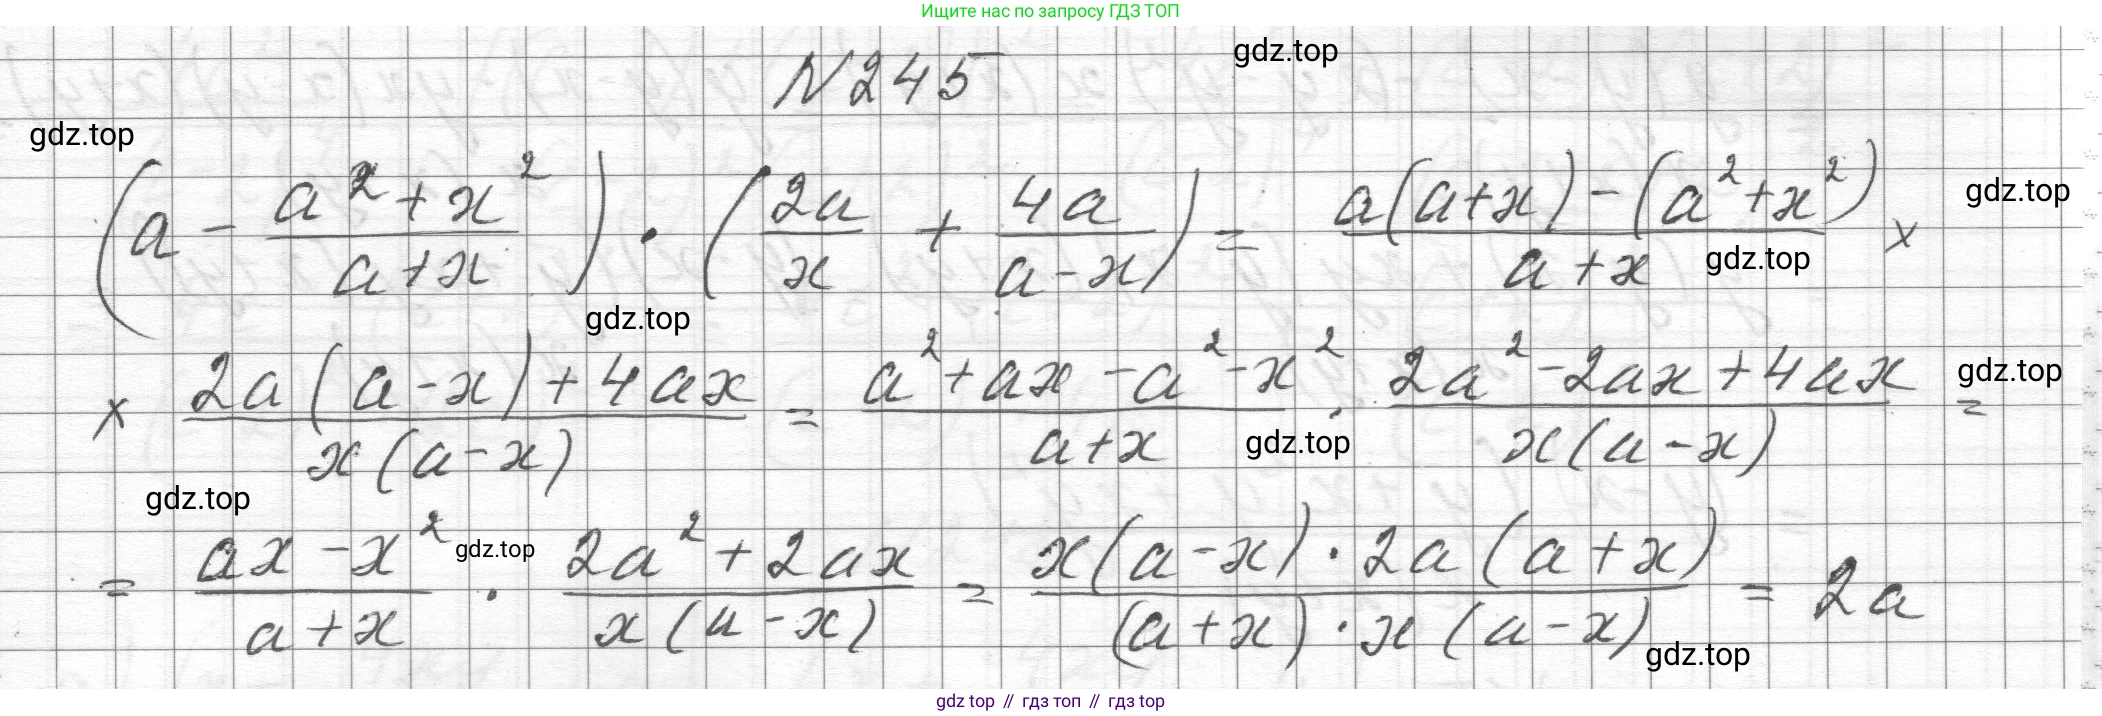 Ищите нас по запросу ГДЗ ТОП
N245
gdz.top
gdz.top
(a - \frac{a^2+x^2}{a+x}) · (\frac{2a}{x} + \frac{4a}{a-x}) = \frac{a(a+x)-(a^2+x^2)}{a+x} ×
gdz.top
gdz.top
gdz.top
× \frac{2a(a-x)+4ax}{x(a-x)} = \frac{a^2+ax-a^2-x^2}{a+x} · \frac{2a^2-2ax+4ax}{x(a-x)} =
gdz.top
gdz.top
gdz.top
= \frac{ax-x^2}{a+x} · \frac{2a^2+2ax}{x(a-x)} = \frac{x(a-x)·2a(a+x)}{(a+x)·x(a-x)} = 2a
gdz.top
gdz.top
gdz top // гдз топ // gdz top